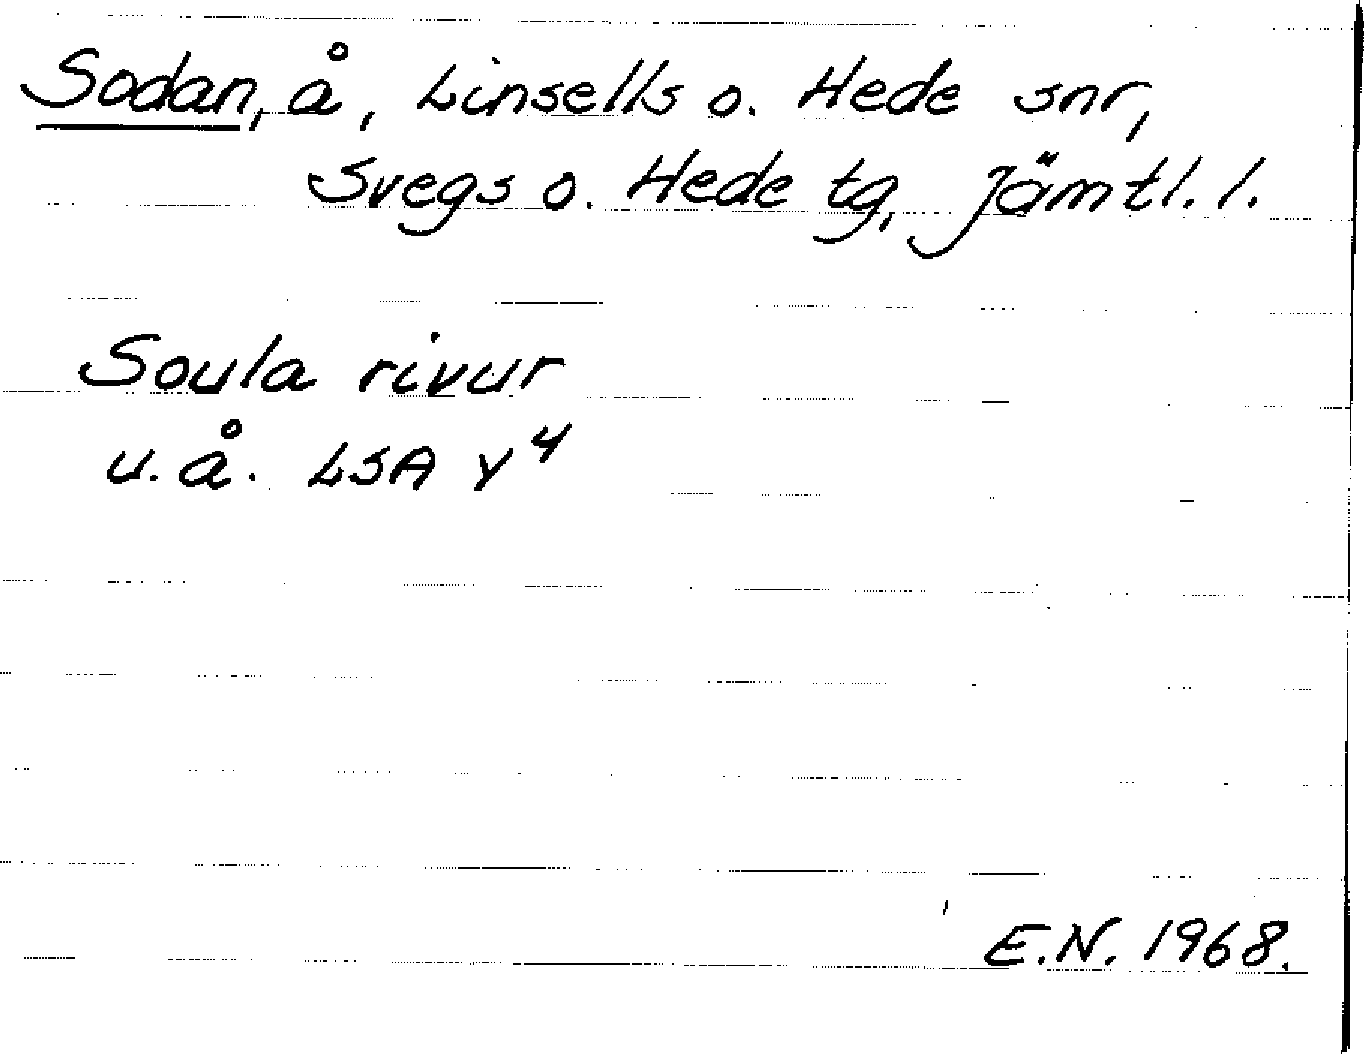 Sodan, å, Linsells o. Hede snr,
Svegs o. Hede tg, Jämtl. l.
Soula rivur
u. å. LSA Y 4
E.N. 1968.